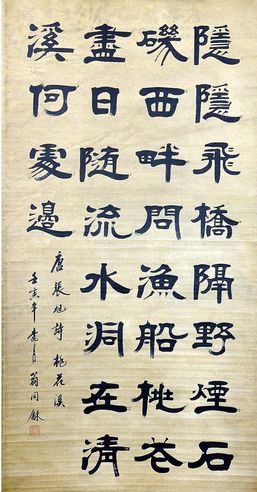 隱隱飛橋隔野煙石
磯西畔問漁船桃花
盡日随流水洞在清
溪何處邊
唐張旭詩桃花溪
壬寅年 月 翁同龢